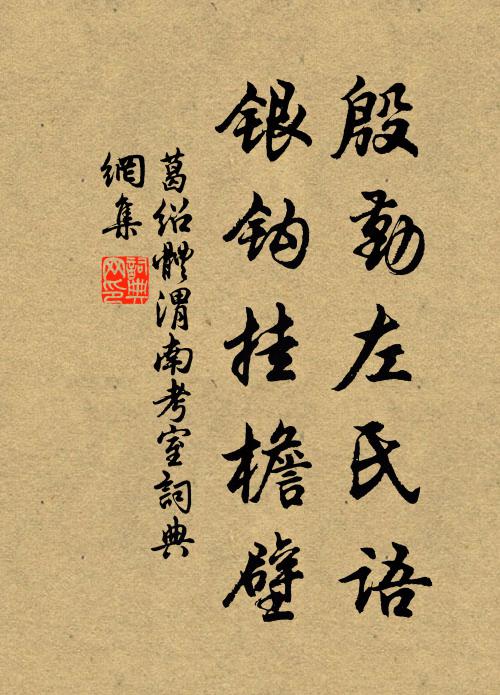 殷勤左氏语
银钩挂檐壁
葛绍體渭南考室詞典
網集
詞典網印